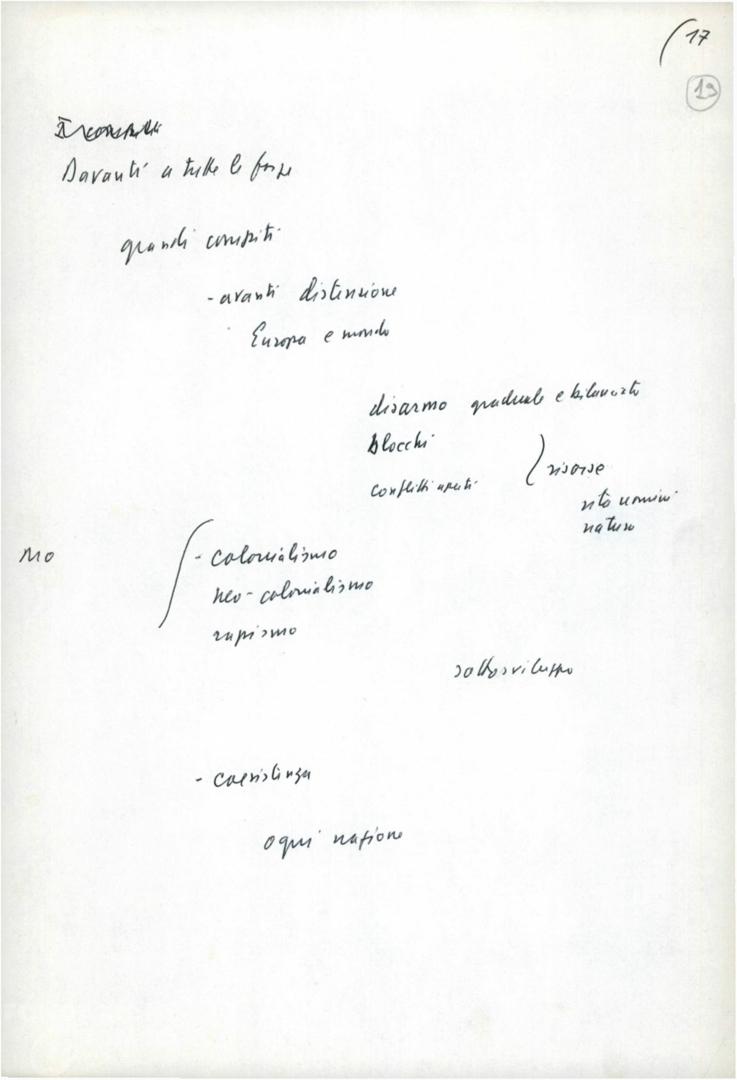 17
19
Davanti a tutte le forze
grandi compiti
- avanti distensione
Europa e mondo
disarmo graduale e bilanciato
blocchi
risorse
conflitti aperti
vita uomini
natura
MO
- colonialismo
neo-colonialismo
razzismo
sottosviluppo
- coesistenza
ogni nazione